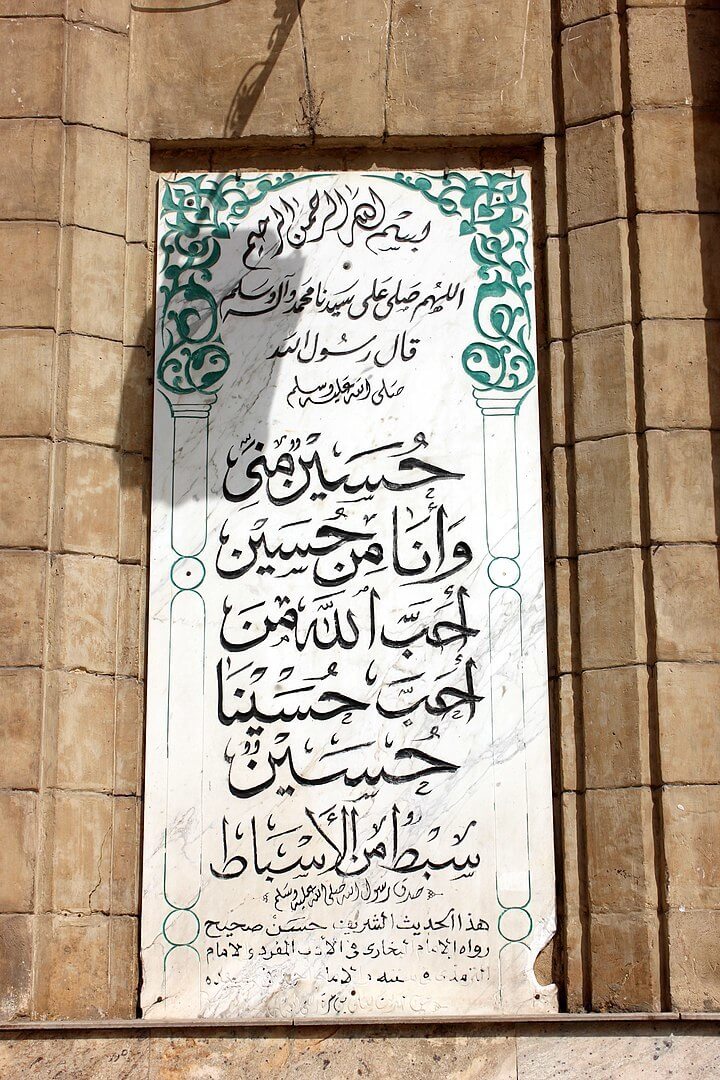 بسم الله الرحمن الرحيم
اللهم صلى على سيدنا محمد وآله وسلم
قال رسول الله
صلى الله عليه وسلم
حُسَيْنٌ مِنِّي
وَأَنَا مِنْ حُسَيْن
أَحَبَّ اللهَ مَنْ
أَحَبَّ حُسَيْنًا
حُسَيْنٌ
سِبْطٌ مِنَ الأَسْبَاط
صدق رسول الله صلى الله عليه وسلم
هذا الحديث الشريف حسن صحيح
رواه الإمام البخارى فى الأدب المفرد والامام